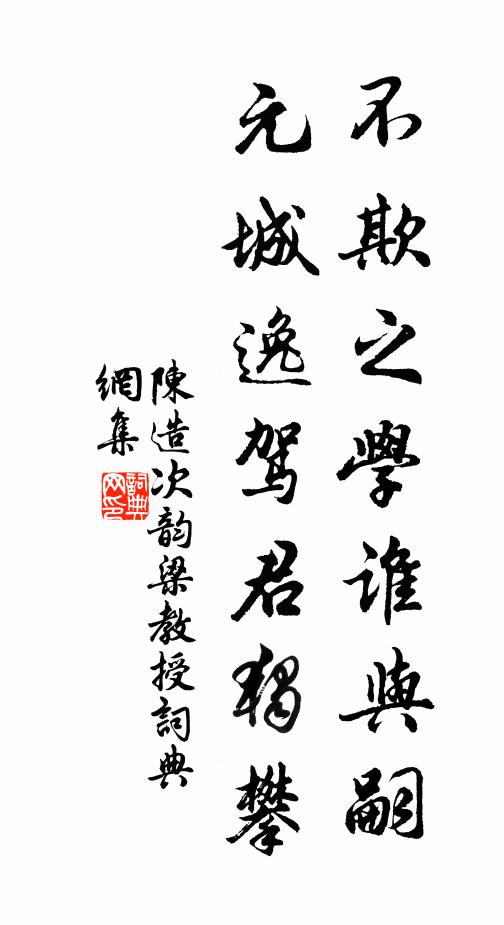 不欺之學誰與嗣
元城逸駕君獨攀
陳造次韵梁教授詞典
網集
詞典網印